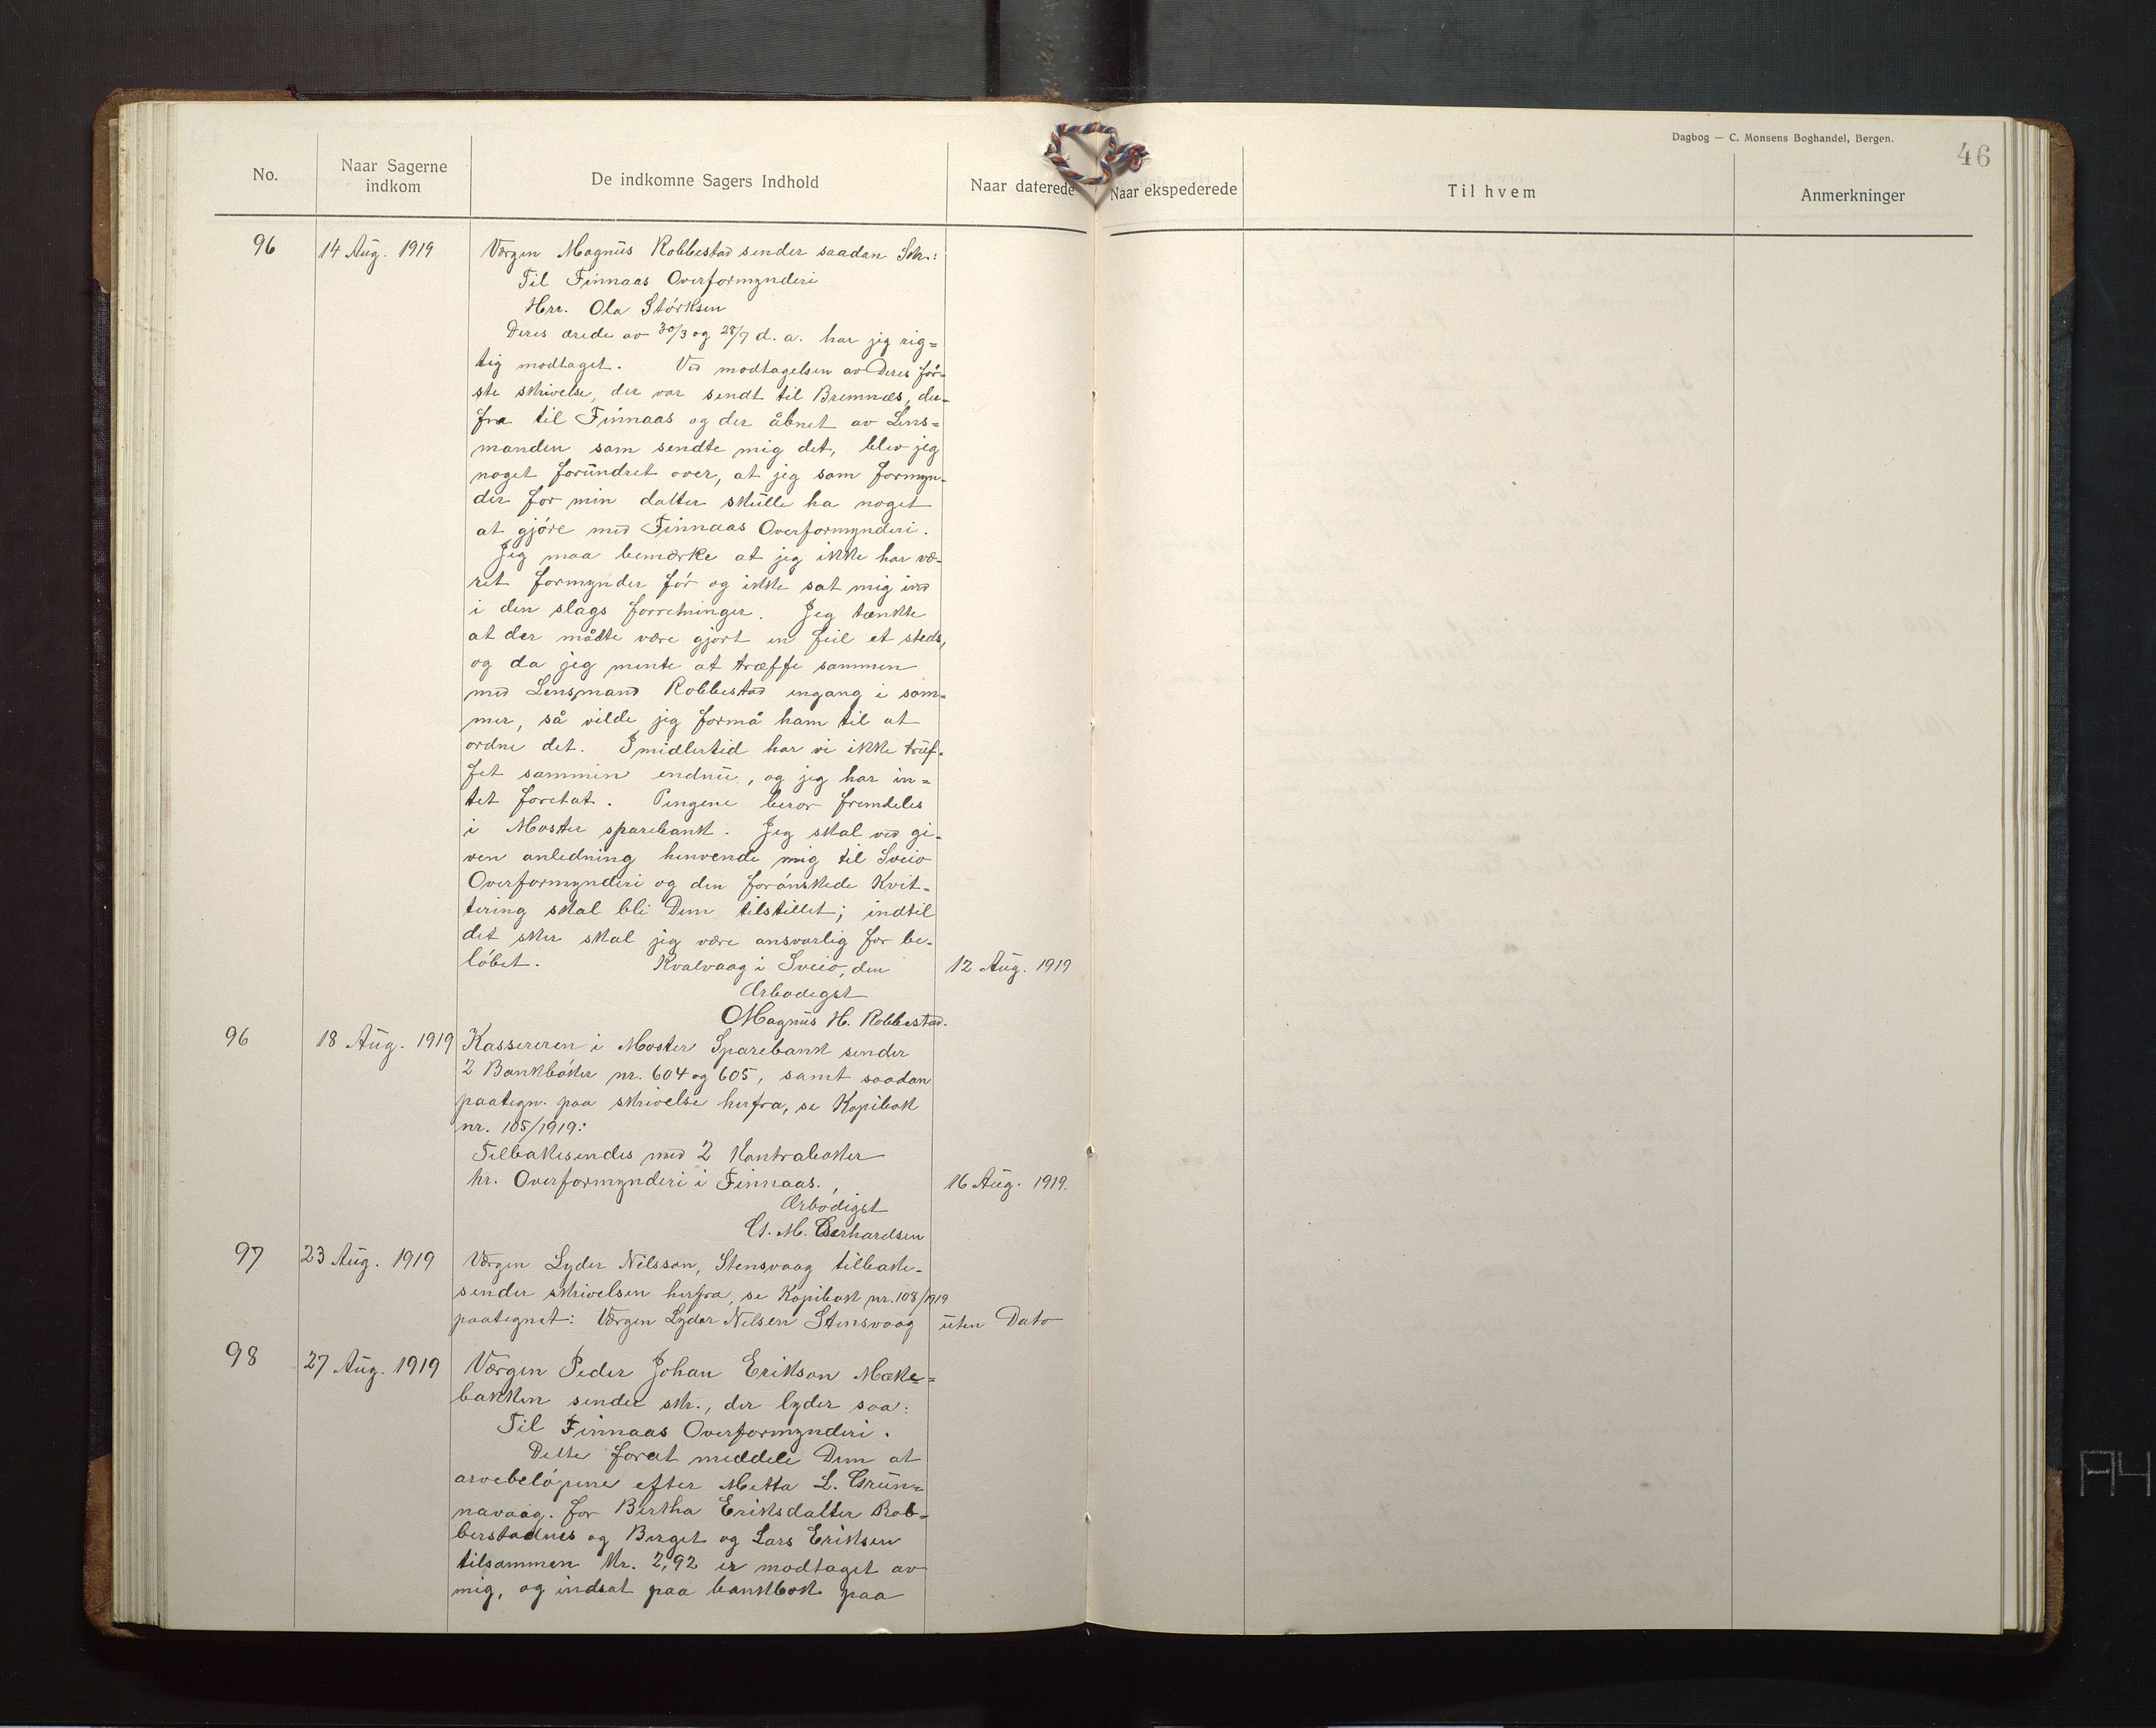 Dagbog — C. Monsens Boghandel, Bergen.
46
No.
Naar Sagerne indkom
De indkomne Sagers Indhold
Naar daterede
Naar ekspederede
Til hvem
Anmerkninger
96 14 Aug. 1919 Værgen Magnus Robbestad sender saadan Skr.:
Til Finnaas Overformynderi
Herr. Ola Störksen
Deres ærede av 30/3 og 28/7 d. a. har jeg rig=
tig modtaget. Ved modtagelsen av Deres för=
ste skrivelse, der var sendt til Bremnes, der=
fra til Finnaas og der åbnet av Lens=
manden som sendte mig det, blev jeg
noget forundret over, at jeg som formyn=
der for min datter skulle ha noget
at gjöre med Finnaas Overformynderi.
Jeg maa bemærke at jeg ikke har væ-
ret formynder för og ikke sat mig ind
i den slags forretninger. Jeg tænkte
at der måtte være gjort en feil et steds,
og da jeg mente at træffe sammen
med Lensmand Robbestad engang i som=
mer, så vilde jeg formå ham til at
ordne det. Imidlertid har vi ikke truf=
fet sammen endnu, og jeg har in=
tet foretat. Pengene beror fremdeles
i Moster sparebank. Jeg skal ved gi=
ven anledning henvende mig til Sveio
Overformynderi og den forönskede Kvit=
tering skal bli Dem tilstillet; indtil
det sker skal jeg være ansvarlig for be=
löbet. Kvalvaag i Sveio, den 12 Aug. 1919
Ærbödigst
Magnus H. Robbestad.
96 18 Aug. 1919 Kassereren i Moster Sparebank sender
2 Bankböker nr. 604 og 605, samt saadan
paategn. paa skrivelse herfra, se Kopibok
nr. 105/1919:
Tilbakesendes med 2 Kontraböker
hr. Overformynderi i Finnaas. 16 Aug. 1919.
Ærbödigst
G. M. Gerhardsen
97 23 Aug. 1919 Værgen Lyder Nilsson, Stensvaag tilbake-
sender skrivelsen herfra, se Kopibok nr. 108/1919
paategnet: Værgen Lyder Nilsen Stensvaag uten Dato
98 27 Aug. 1919 Værgen Peder Johan Erikson Mæke=
bakken sender skr., der lyder saa:
Til Finnaas Overformynderi.
Dette forat meddele Dem at
arvebelöpene efter Metta L. Grün=
navaag. for Bertha Eriksdatter Rob=
berstadnes og Berget og Lars Eriksen
tilsammen Kr. 2,92 er modtaget av
mig, og indsat paa bankbok paa